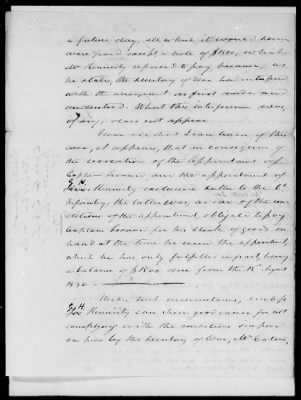 a future day, all which it would seem
were paid except a note of $800, which
Mr Kennerty refused to pay because, as
he states, the Secretary of War had interfered
with the arrangement as first made and
understood. What this interference was,
if any, does not appear.
From all that I can learn of this
case, it appears, that in consequence of
the revocation of the appointment of
Captain Leonard and the appointment of
Kennerty exclusive Sutler to the
the latter was, as one of the con-
ditions of the appointment, obliged to pay
Captain Leonard for his stock of goods on
hand at the time he received the appointment,
which he has only fulfilled in part, having
a balance of $800 due from the
1830.
Under such circumstances, unless
Kennerty can show good cause for not
complying with the conditions imposed
on him by the Secretary of War, Mr Eaton,